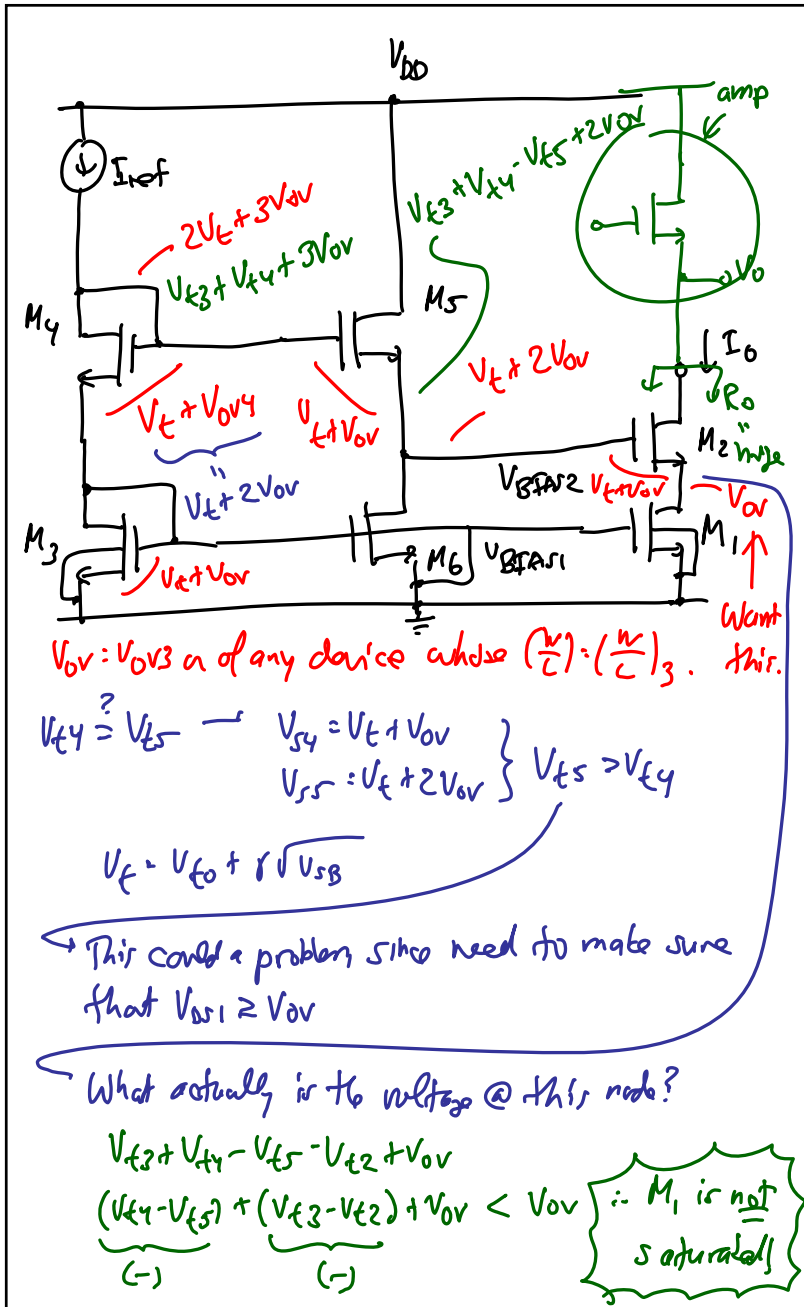 V_DD
amp
I_ref
V_t3 + V_t4 - V_t5 + 2V_ov
2V_t + 3V_ov
V_t3 + V_t4 + 3V_ov
V_o
M_4
M_5
I_o
V_t + V_ov4
V_t + V_ov
V_t + 2V_ov
R_o
"
huge
M_2
"
V_t + 2V_ov
V_BIAS2
V_t + V_ov
V_ov
M_3
V_t + V_ov
M_6
V_BIAS1
M_1
Want
this.
V_ov = V_ov3 or of any device whose (W/L) = (W/L)_3.
V_t4 ?= V_t5 — V_s4 = V_t + V_ov
V_s5 = V_t + 2V_ov } V_t5 > V_t4
V_t = V_t0 + γ√V_SB
This could a problem, since need to make sure
that V_DS1 ≥ V_ov
What actually is the voltage @ this node?
V_t3 + V_t4 - V_t5 - V_t2 + V_ov
(V_t4 - V_t5) + (V_t3 - V_t2) + V_ov < V_ov ∴ M_1 is not
(-) (-) saturated!